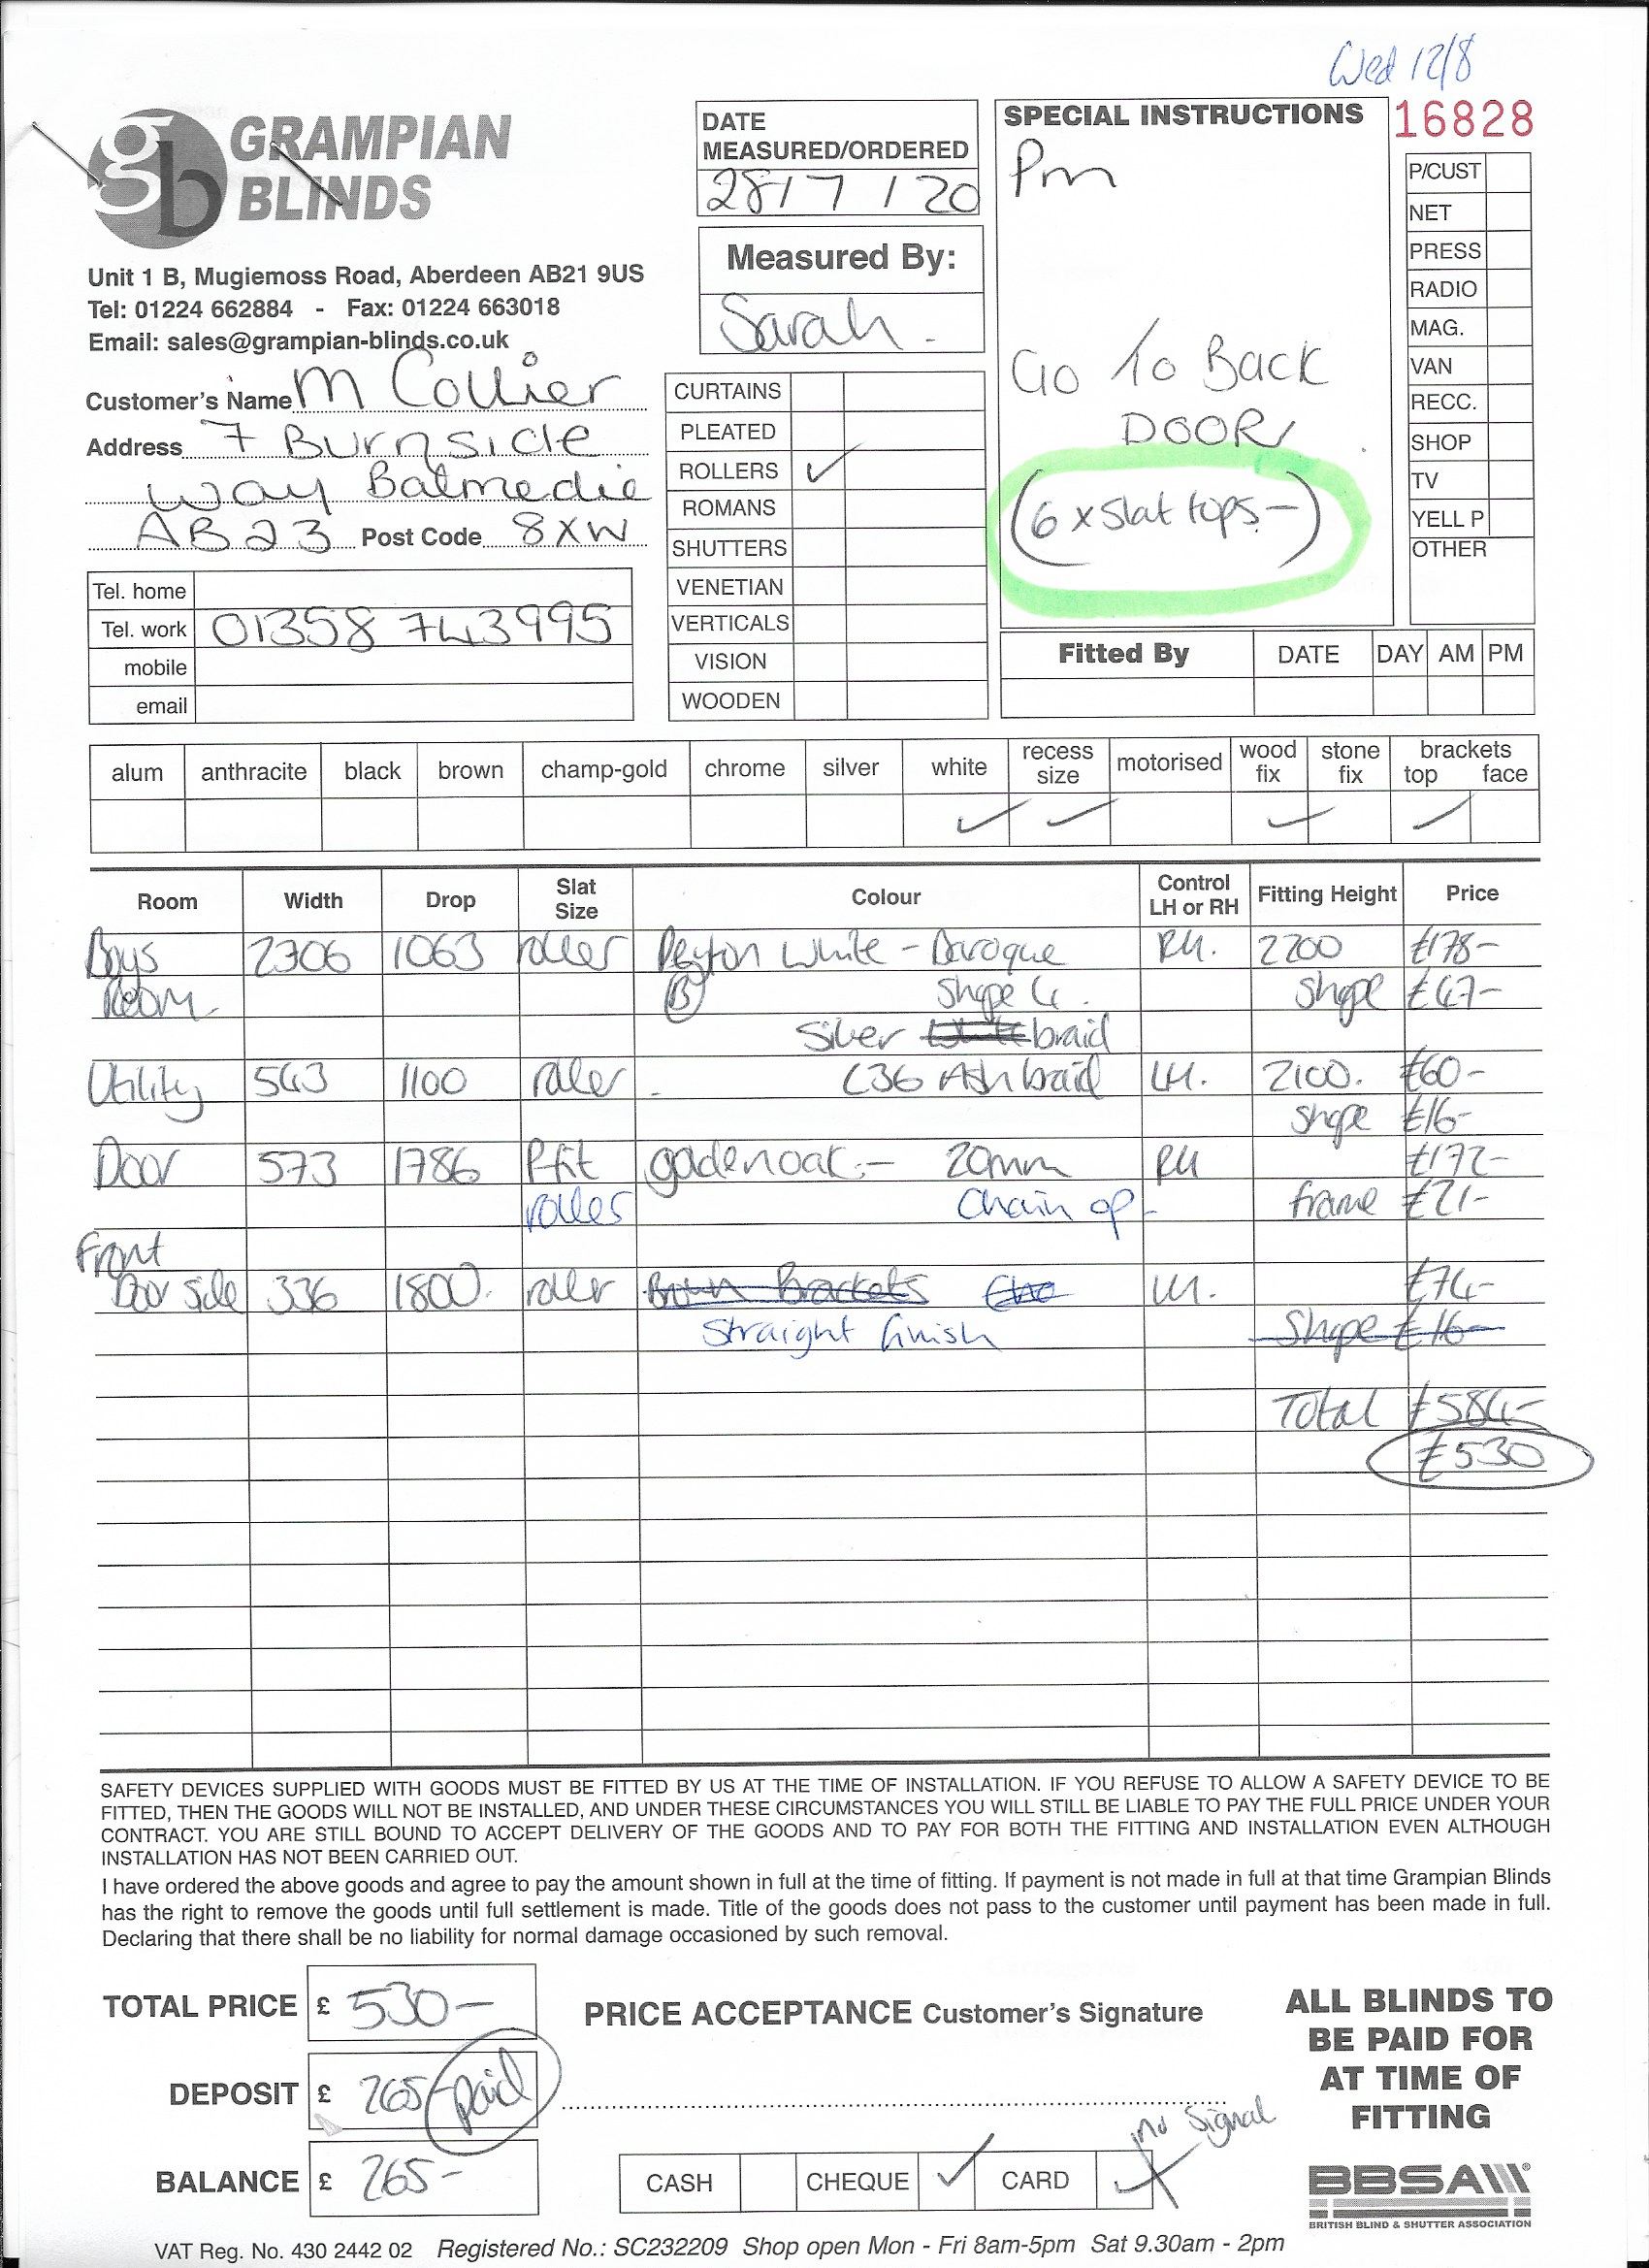 Wed 12/8
gb GRAMPIAN
BLINDS
Unit 1 B, Mugiemoss Road, Aberdeen AB21 9US
Tel: 01224 662884 - Fax: 01224 663018
Email: sales@grampian-blinds.co.uk
Customer's Name M Collier
Address 7 Burnside
Way Balmedie
AB23 Post Code 8XW
Tel. home
Tel. work 01358 743995
mobile
email
DATE
MEASURED/ORDERED
28/7/20
Measured By:
Sarah.
CURTAINS
PLEATED
ROLLERS ✓
ROMANS
SHUTTERS
VENETIAN
VERTICALS
VISION
WOODEN
SPECIAL INSTRUCTIONS
Pm
Go To Back
DOOR
(6 x slat tops-)
16828
P/CUST
NET
PRESS
RADIO
MAG.
VAN
RECC.
SHOP
TV
YELL P
OTHER
Fitted By DATE DAY AM PM
alum anthracite black brown champ-gold chrome silver white recess size motorised wood fix stone fix brackets top face
✓ ✓ ✓ ✓
Room Width Drop Slat Size Colour Control LH or RH Fitting Height Price
Boys 2306 1063 roller Peyton White - Baroque RH. 2200 £178-
Room. B Shape 4. Shape £47-
Silver braid
Utility 543 1100 roller - C36 Ash braid LH. 2100. £60-
Shape £16-
Door 573 1786 Pfit goldenoak - 20mm RH £172-
roller Chain op- frame £21-
Front
Door Side 336 1800. roller Brown Brackets LH. £74-
Straight finish Shape £16-
Total £584-
£530
SAFETY DEVICES SUPPLIED WITH GOODS MUST BE FITTED BY US AT THE TIME OF INSTALLATION. IF YOU REFUSE TO ALLOW A SAFETY DEVICE TO BE
FITTED, THEN THE GOODS WILL NOT BE INSTALLED, AND UNDER THESE CIRCUMSTANCES YOU WILL STILL BE LIABLE TO PAY THE FULL PRICE UNDER YOUR
CONTRACT. YOU ARE STILL BOUND TO ACCEPT DELIVERY OF THE GOODS AND TO PAY FOR BOTH THE FITTING AND INSTALLATION EVEN ALTHOUGH
INSTALLATION HAS NOT BEEN CARRIED OUT.
I have ordered the above goods and agree to pay the amount shown in full at the time of fitting. If payment is not made in full at that time Grampian Blinds
has the right to remove the goods until full settlement is made. Title of the goods does not pass to the customer until payment has been made in full.
Declaring that there shall be no liability for normal damage occasioned by such removal.
TOTAL PRICE £ 530-
DEPOSIT £ 265- paid
BALANCE £ 265-
PRICE ACCEPTANCE Customer's Signature
no Signal
CASH CHEQUE ✓ CARD
ALL BLINDS TO
BE PAID FOR
AT TIME OF
FITTING
BBSA
BRITISH BLIND & SHUTTER ASSOCIATION
VAT Reg. No. 430 2442 02 Registered No.: SC232209 Shop open Mon - Fri 8am-5pm Sat 9.30am - 2pm